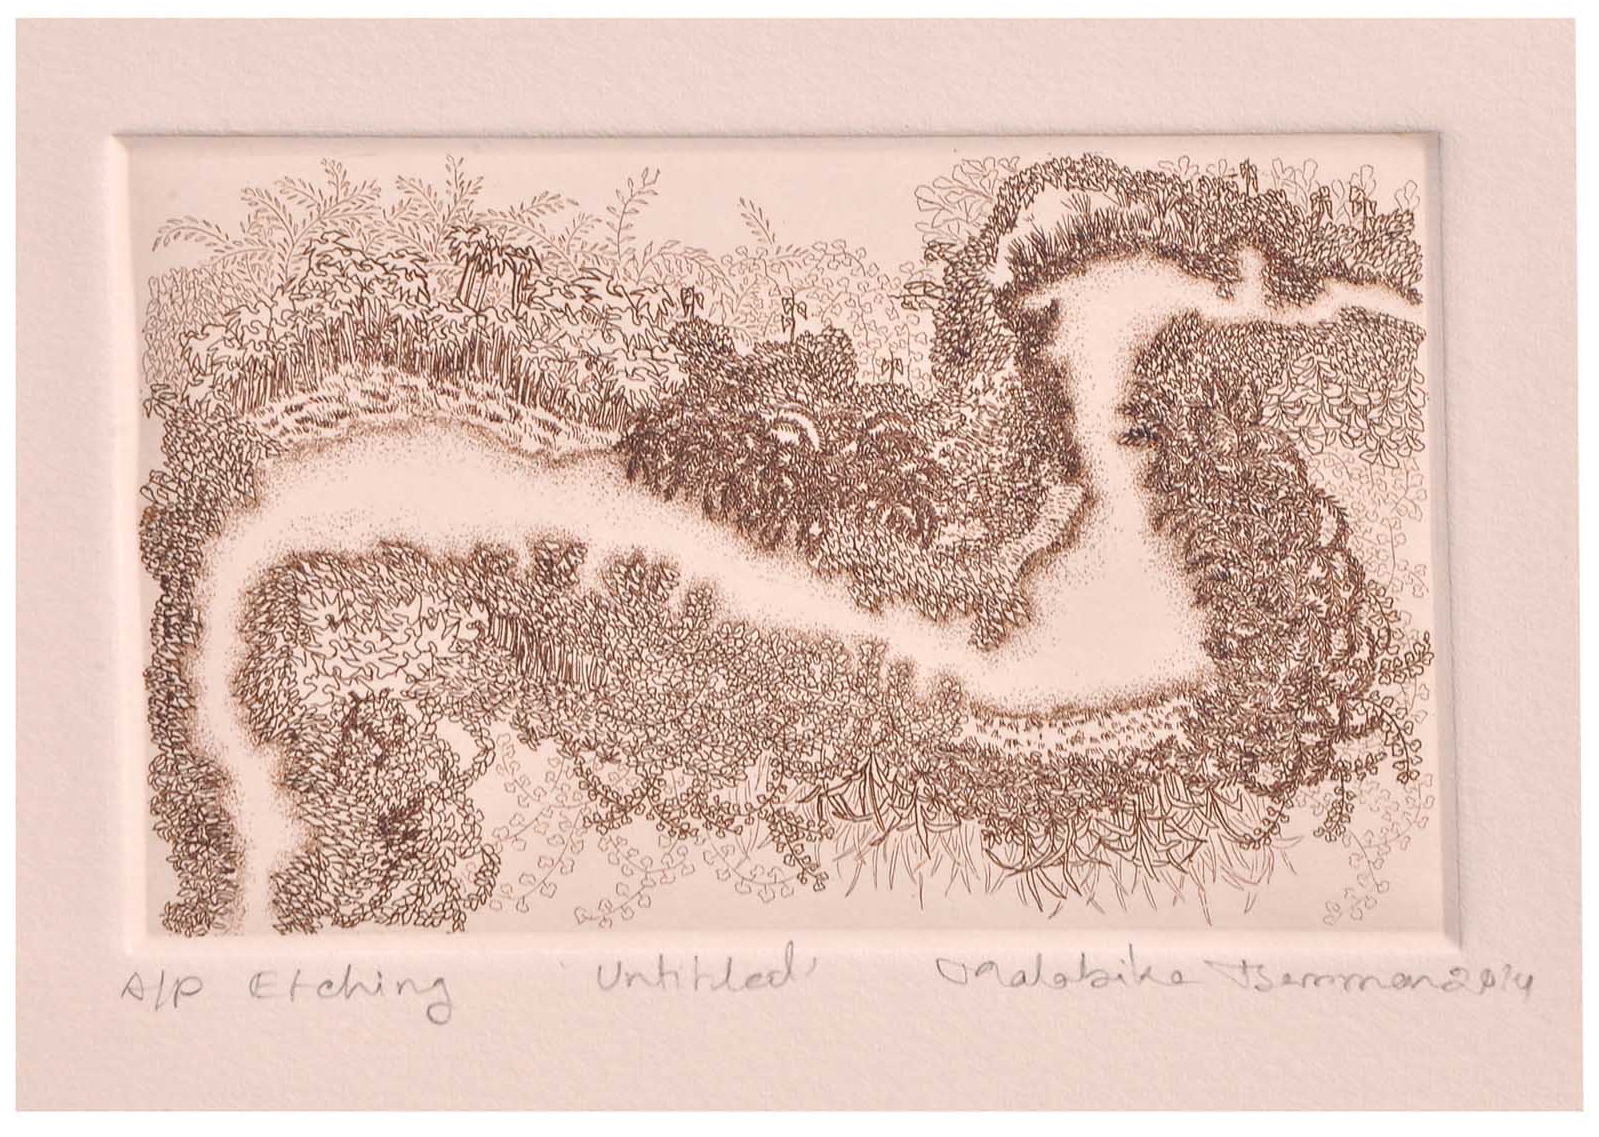 A/P Etching 'Untitled' Malabika Barman 2014